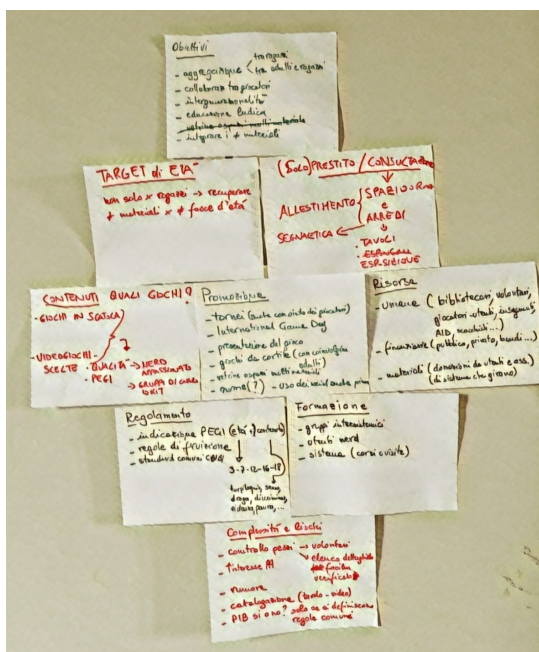 Obiettivi
tra ragazzi
- aggregazione < tra adulti e ragazzi
- collaboraz tra giocatori
- intergenerazionalità
- educazione ludica
- integrare i ≠ materiali
TARGET di ETÀ
non solo x ragazzi → recuperare
≠ materiali x ≠ fasce d'età
(Solo) PRESTITO / CONSULTAZIONE
ALLESTIMENTO { SPAZIO
e
ARREDI
SEGNALETICA
- TAVOLI
- ESPOSIZIONE
CONTENUTI QUALI GIOCHI?
- GIOCHI IN SCATOLA
- VIDEOGIOCHI
SCELTE - QUALITÀ → NERD
APPASSIONATO
- PEGI
→ GRUPPI DI
Promozione
- tornei (anche con aiuto dei giocatori)
- International Game Day
- presentazione del gioco
- giochi da cortile (con coinvolgim
adulti)
- vetrine
- nome(?) - uso dei
Risorse
- umane (bibliotecari, volontari,
giocatori-utenti, insegnanti,
AID, scacchisti...)
- finanziarie (pubblico, privato, bandi...)
- materiali (donazioni da utenti e ass.)
(di sistema che girano)
Regolamento
- indicazione PEGI (età e/o contenuto)
- regole di fruizione
- standard comuni
3-7-12-16-18
turpiloquio, sesso,
droga, discriminaz,
violenza, paura, ...
Formazione
- gruppi intersistemici
- utenti nerd
- sistema (corsi o visite)
Complessità e Rischi
- controllo pezzi → volontari
→ elenco dettagliato
verificabile
- rumore
- catalogazione (tavolo - video)
- PIB si o no? solo se si definiscono
regole comuni